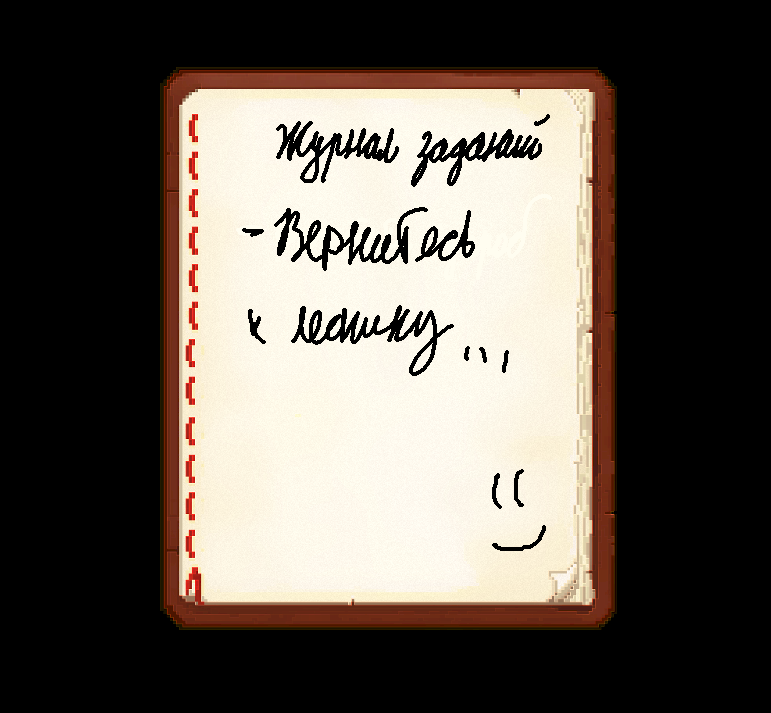 Журнал заданий
- Вернитесь
к леснику...